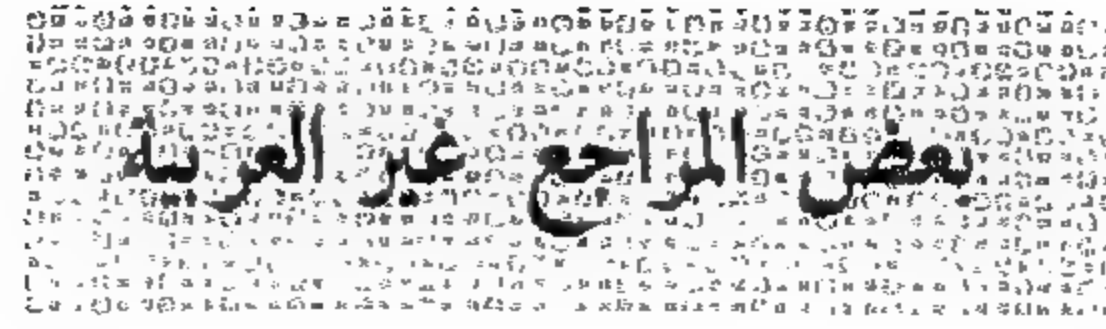 بعض المراجع غير العربية